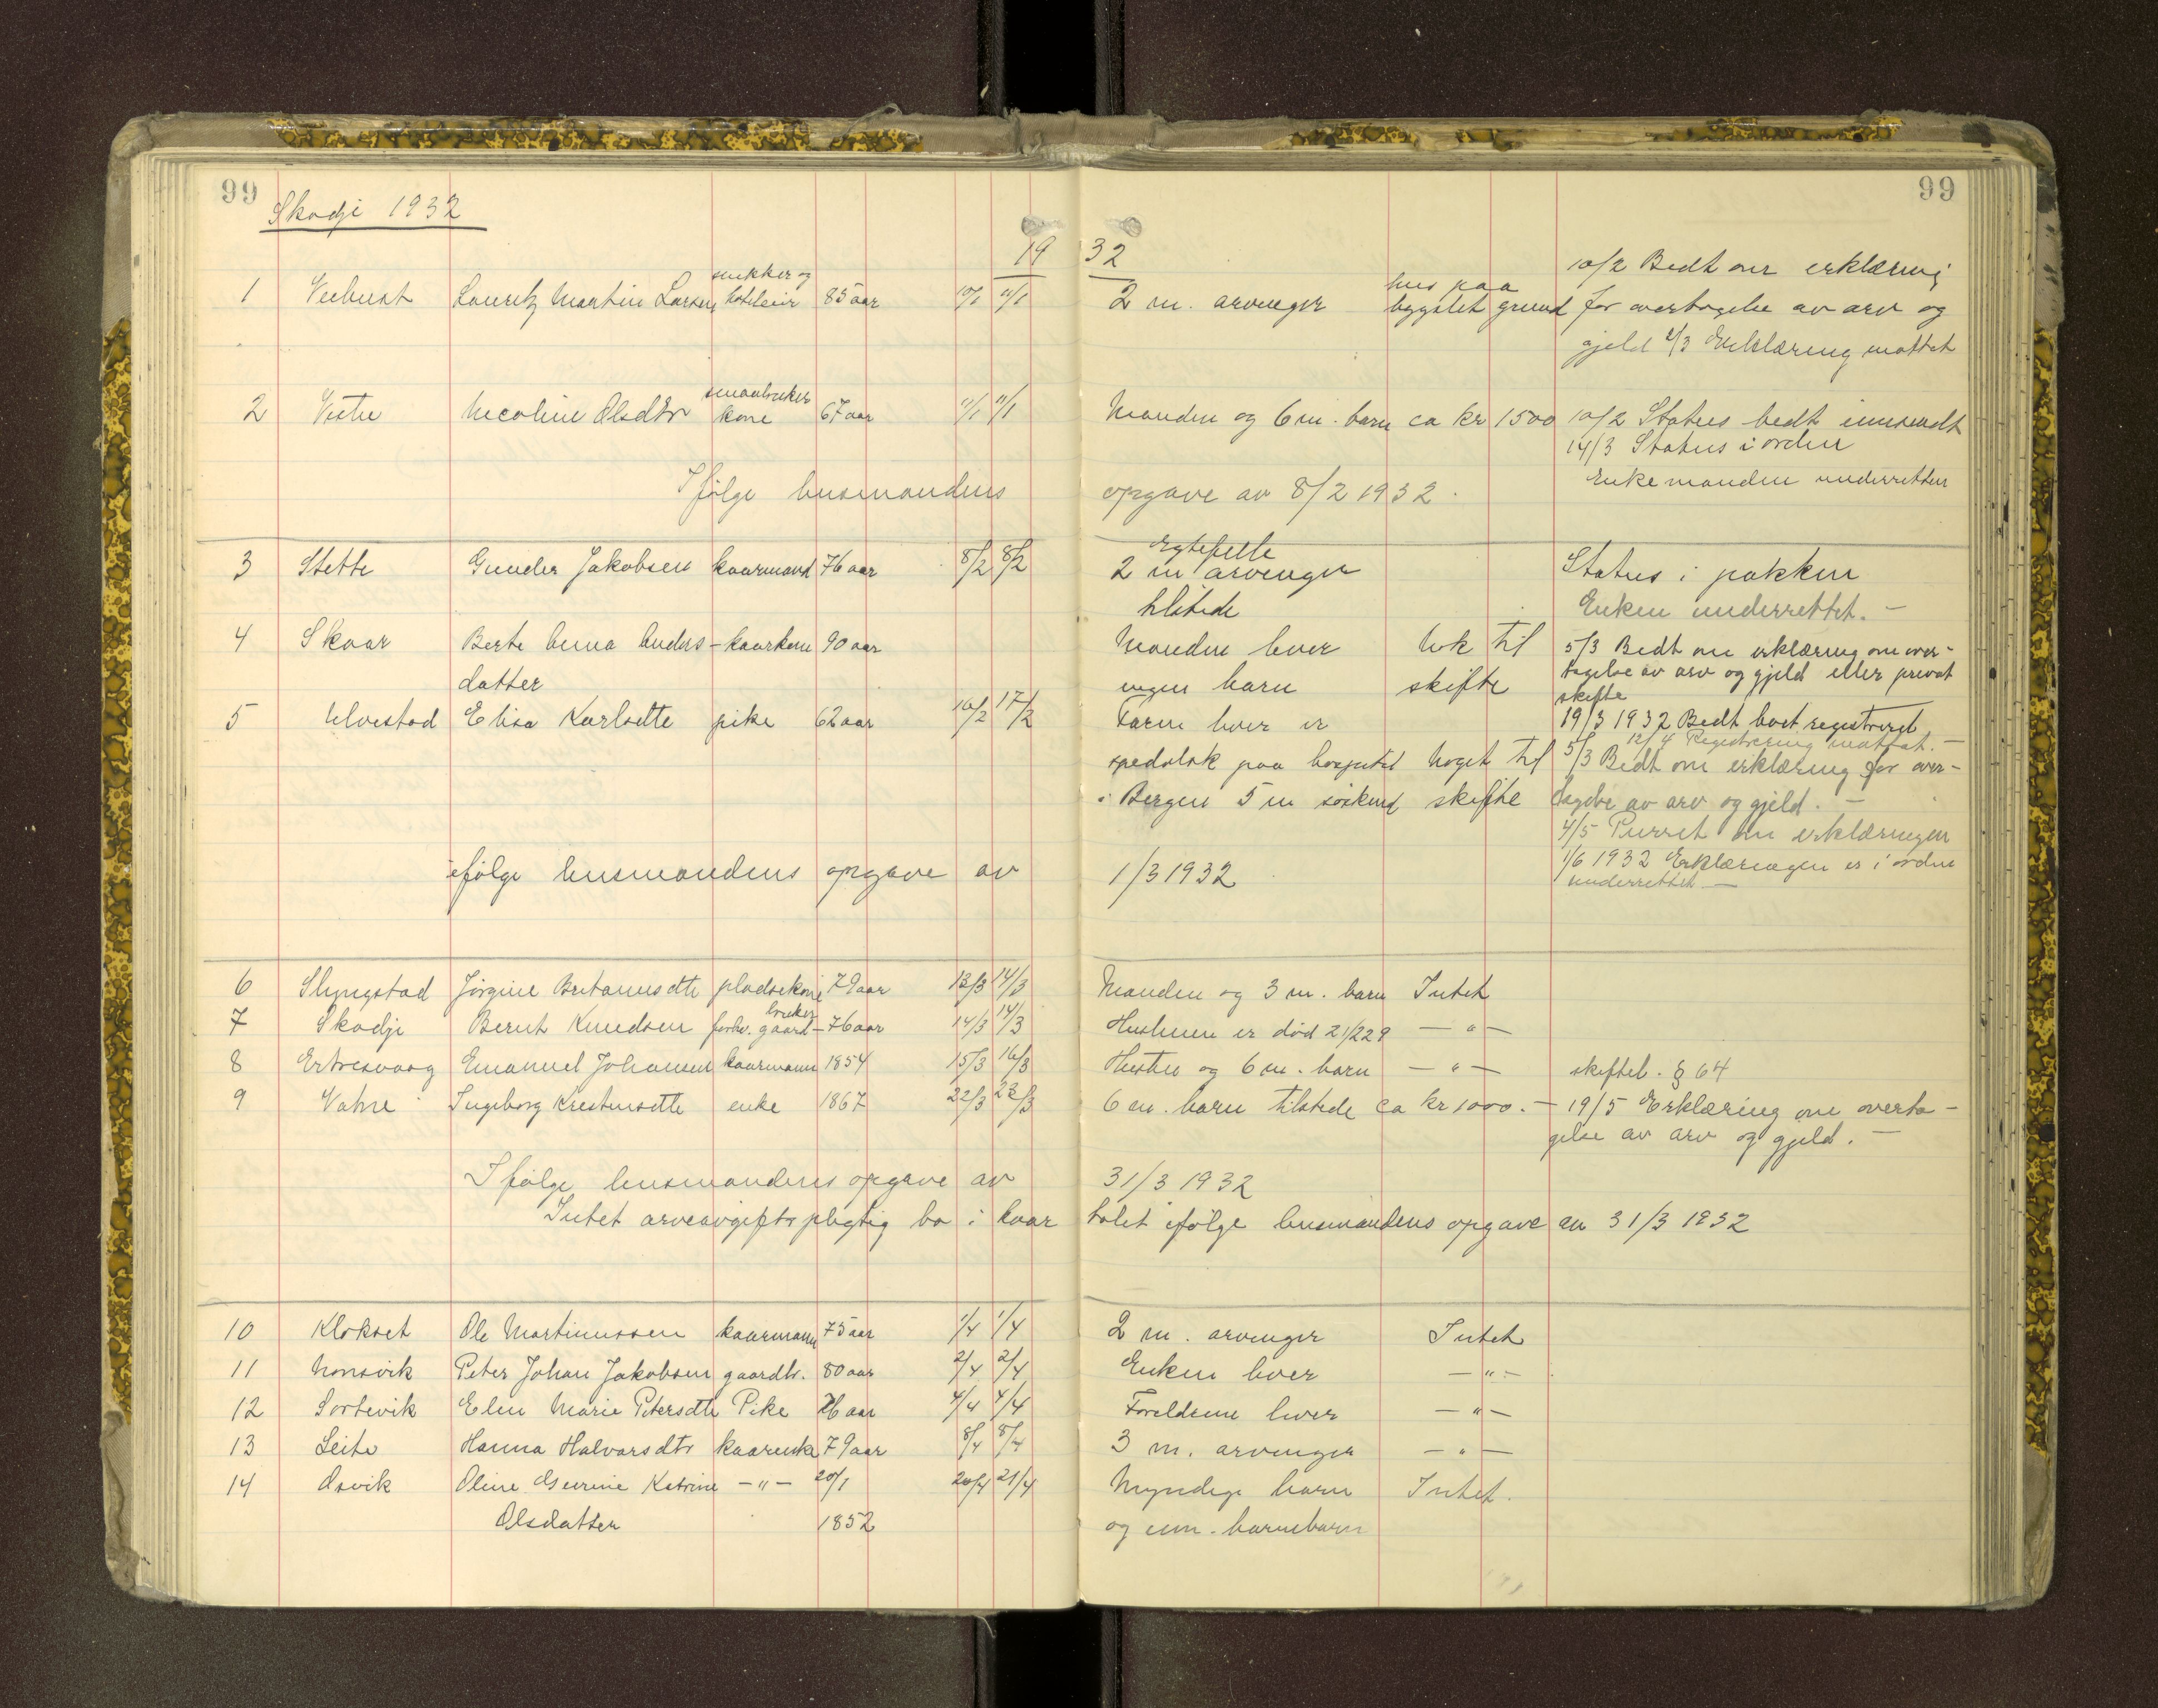 99
99
Skodje 1932
19 32
snekker og hus paa 10/2 Bedt om erklæring
1 Veibust Lauritz Martin Larsen 85 aar 10/1 11/1 2 m. arvinger bygslet grund for overtagelse av arv og
gjeld 4/3 Erklæring mottat
smaabruker
2 Vestre Nicoline Olsdtr kone 67 aar 11/1 11/1 Manden og 6 m. barn ca kr 1500 10/2 Status bedt innsendt
14/3 Status i orden
Ifølge lensmandens opgave av 8/2 1932. Enkemanden underrettet
egtefelle
3 Stette Gunder Jakobsen kaarmand 76 aar 8/2 8/2 2 m arvinger Status i pakken
tilstede Enken underrettet. -
4 Skaar Berte Anna Anders- kaarkone 90 aar Manden lever nok til 5/3 Bedt om erklæring om over-
datter ingen barn skifte tagelse av arv og gjeld eller privat
skifte
5 Ulvestad Elisa Karlsdtr pike 62 aar 16/2 17/2 Faren lever er 19/3 1932 Bedt boet registreret
12/4 Registrering mottat. -
spedalsk paa hospital Noget til 5/3 Bedt om erklæring for over-
i Bergen 5 m søskend skifte tagelse av arv og gjeld. -
4/5 Purret om erklæringen
1/6 1932 Erklæringen er i orden
ifølge lensmandens opgave av 1/3 1932 underrettet -
6 Slyngstad Jørgine Bretanusdtr pladsekone 79 aar 13/3 14/3 Manden og 3 m. barn Intet
bruker
7 Skodje Bernt Knudsen forhv. gaard- 76 aar 14/3 14/3 Hustruen er død 21/2 29 - " -
8 Ertresvaag Emanuel Johansen kaarmann 1854 15/3 16/3 Hustru og 6 m. barn - " - skiftel. § 64
9 Vatne Ingeborg Kristensdtr enke 1867 22/3 23/3 6 m. barn tilstede ca kr 1000.- 19/5 Erklæring om overta-
gelse av arv og gjeld. -
Ifølge lensmandens opgave av 31/3 1932
Intet arveavgiftspligtig bo i kvartalet ifølge lensmandens opgave av 31/3 1932
10 Klokset Ole Martinussen kaarmann 75 aar 1/4 1/4 2 m. arvinger Intet
11 Nonsvik Peter Johan Jakobsen gaardbr. 80 aar 2/4 2/4 Enken lever - " -
12 Sortevik Elen Marie Petersdtr Pike 26 aar 4/4 4/4 Foreldrene lever - " -
13 Leite Hanna Halvorsdtr kaarenke 79 aar 8/4 8/4 3 m. arvinger - " -
14 Osvik Oline Katrine - " - 20/1 20/4 21/4 Myndige barn Intet.
Olsdatter 1852 og um. barnebarn